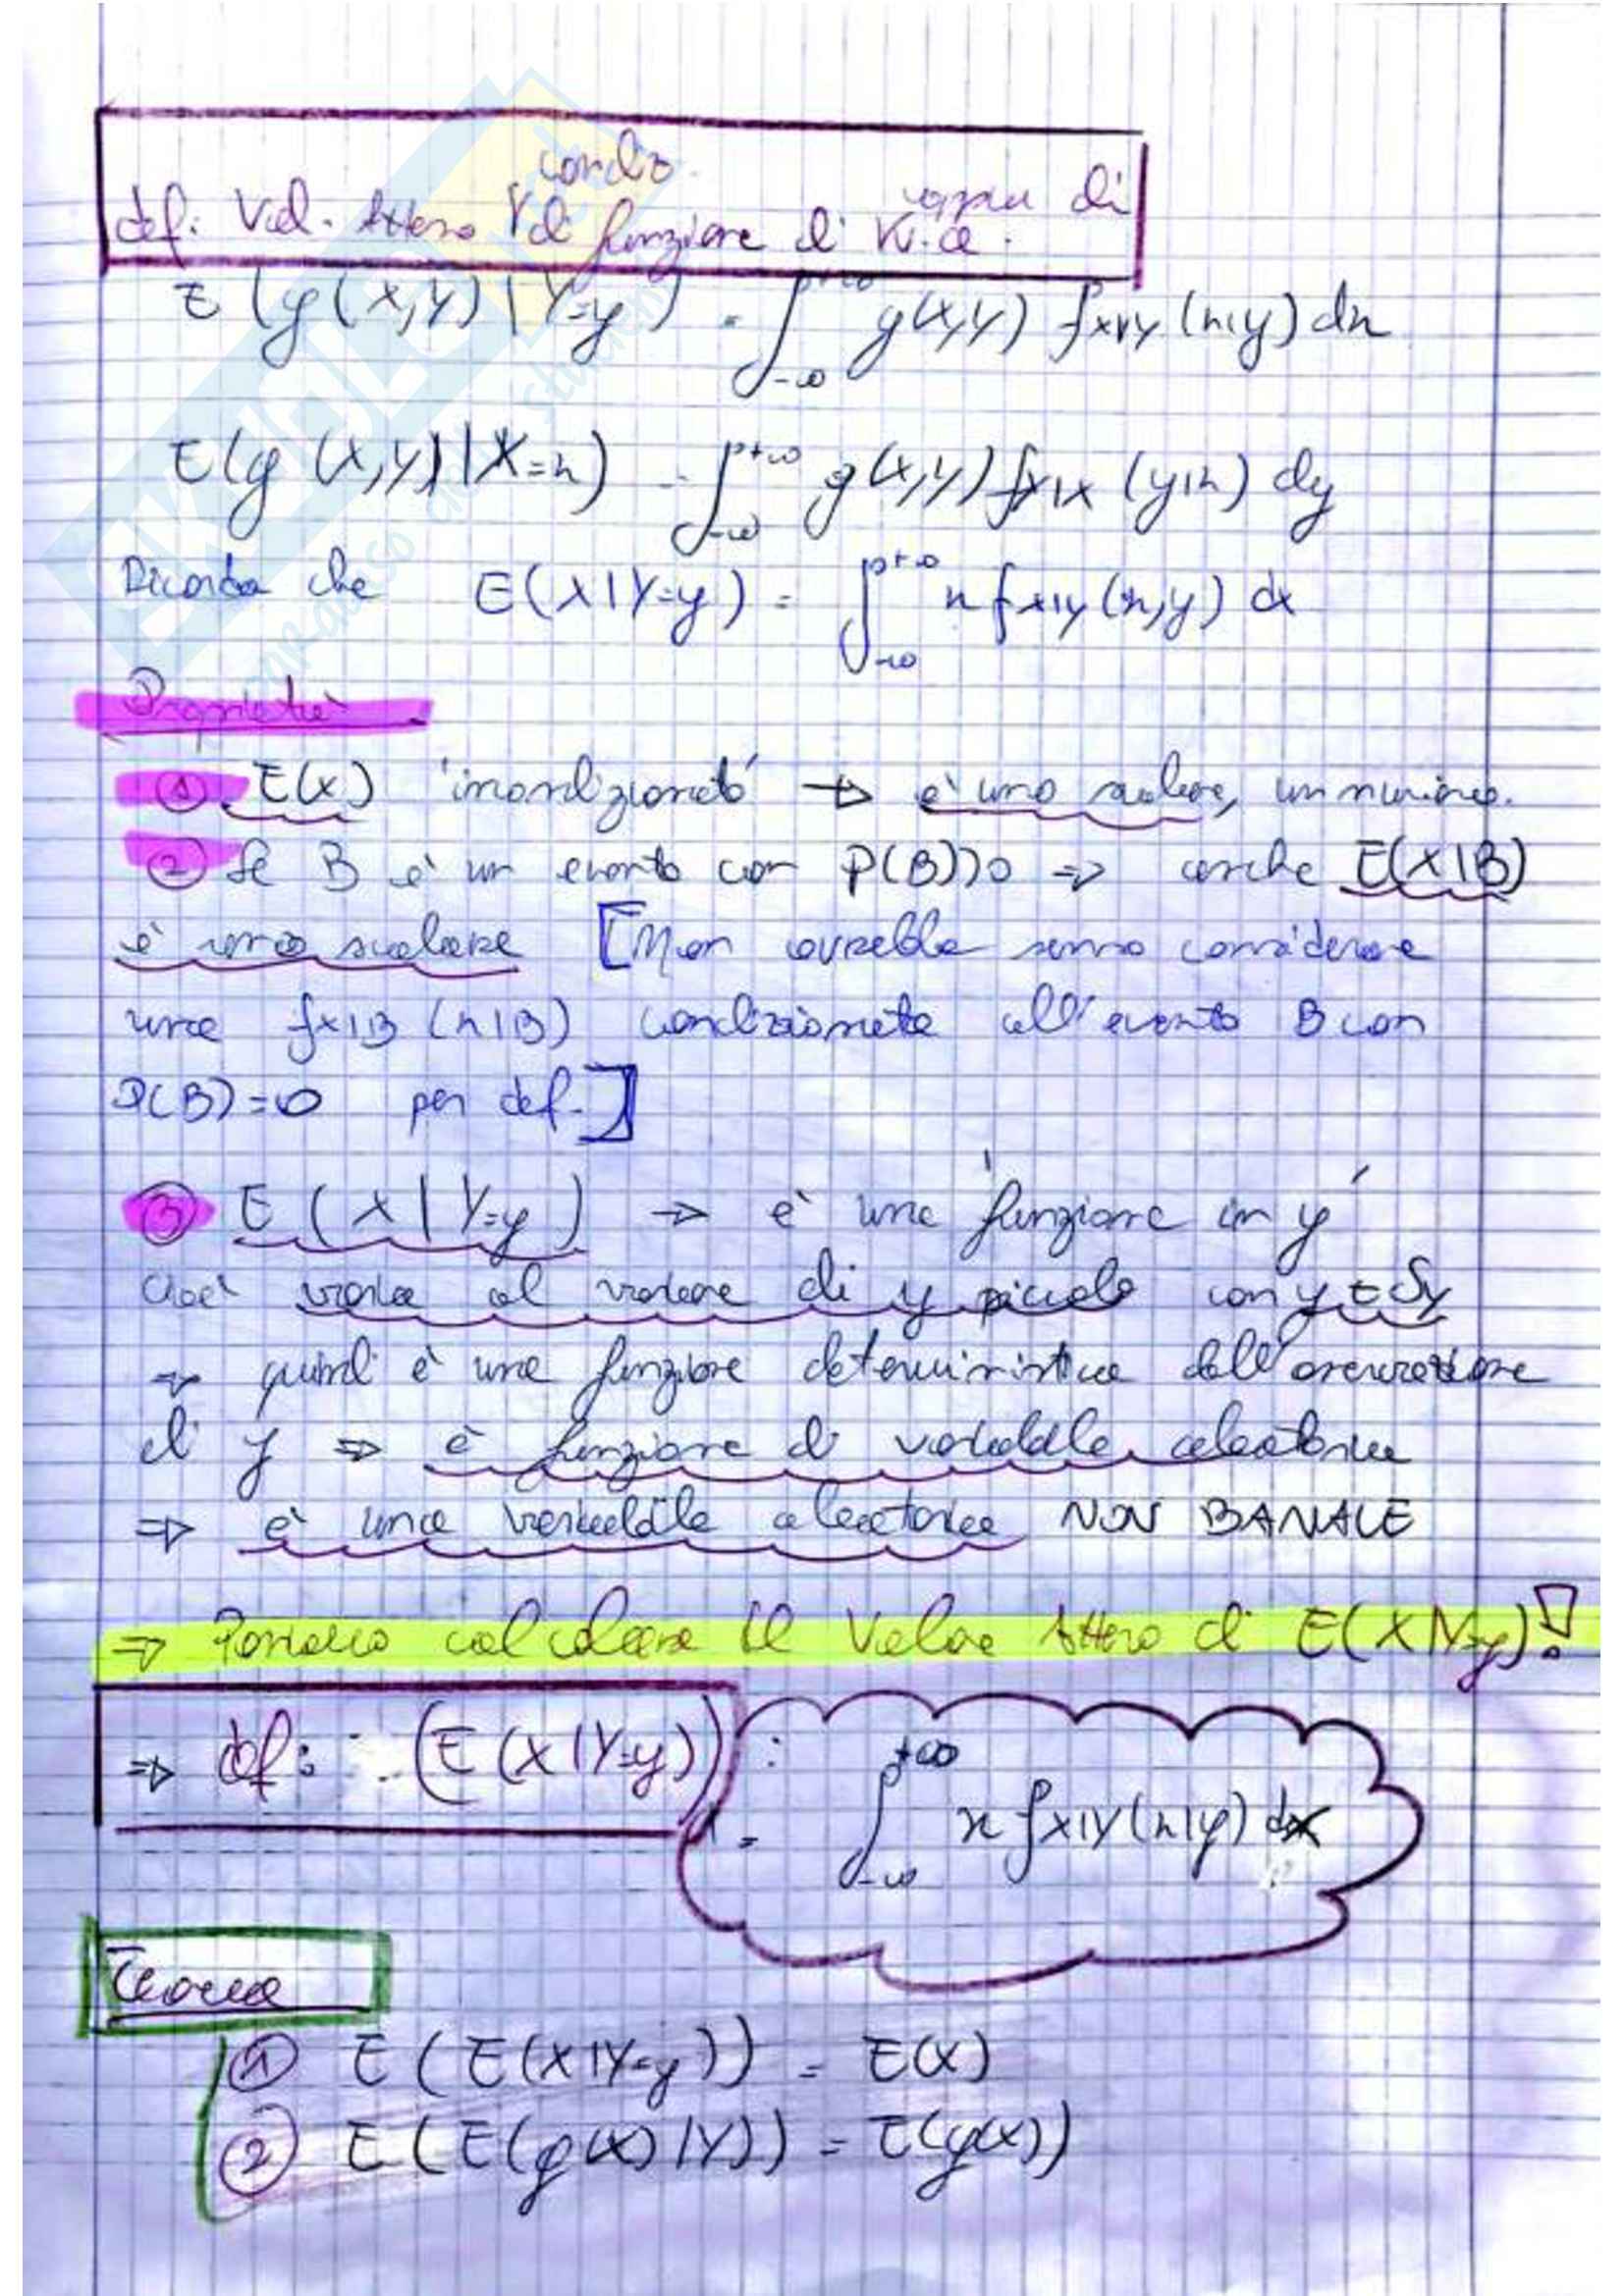 def: Val. Atteso condiz. di funzione di coppia di v.a.
E(g(X,Y)|Y=y) = ∫_{-∞}^{+∞} g(x,y) f_{X|Y}(x|y) dx
E(g(X,Y)|X=x) = ∫_{-∞}^{+∞} g(x,y) f_{Y|X}(y|x) dy
Ricorda che E(X|Y=y) = ∫_{-∞}^{+∞} x f_{X|Y}(x,y) dx
Proprietà
① E(X) 'incondizionato' → è uno scalare, un numero.
② Se B è un evento con P(B)>0 ⇒ anche E(X|B)
è uno scalare [Non avrebbe senso considerare
una f_{X|B}(x|B) condizionata all'evento B con
P(B)=0 per def.]
③ E(X|Y=y) → è una 'funzione in y'
cioè varia al variare di y piccolo con y∈S_Y
⇒ quindi è una funzione deterministica dell'osservazione
di y ⇒ è funzione di variabile aleatoria
⇒ è una variabile aleatoria NON BANALE
⇒ Possiamo calcolare il Valore Atteso di E(X|Y=y)!
⇒ def: (E(X|Y=y)) : = ∫_{-∞}^{+∞} x f_{X|Y}(x|y) dx
Teorema
① E(E(X|Y=y)) = E(X)
② E(E(g(X)|Y)) = E(g(X))